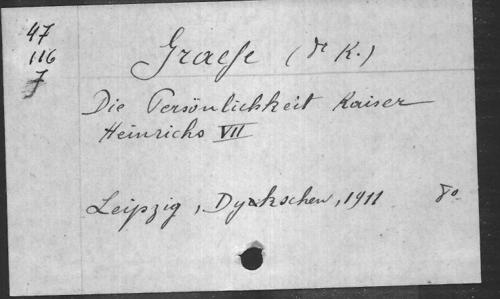 47
116
7
Graefe (Dr K.)
Die Persönlichkeit Kaiser
Heinrichs VII
Leipzig, Dykschen, 1911 8o